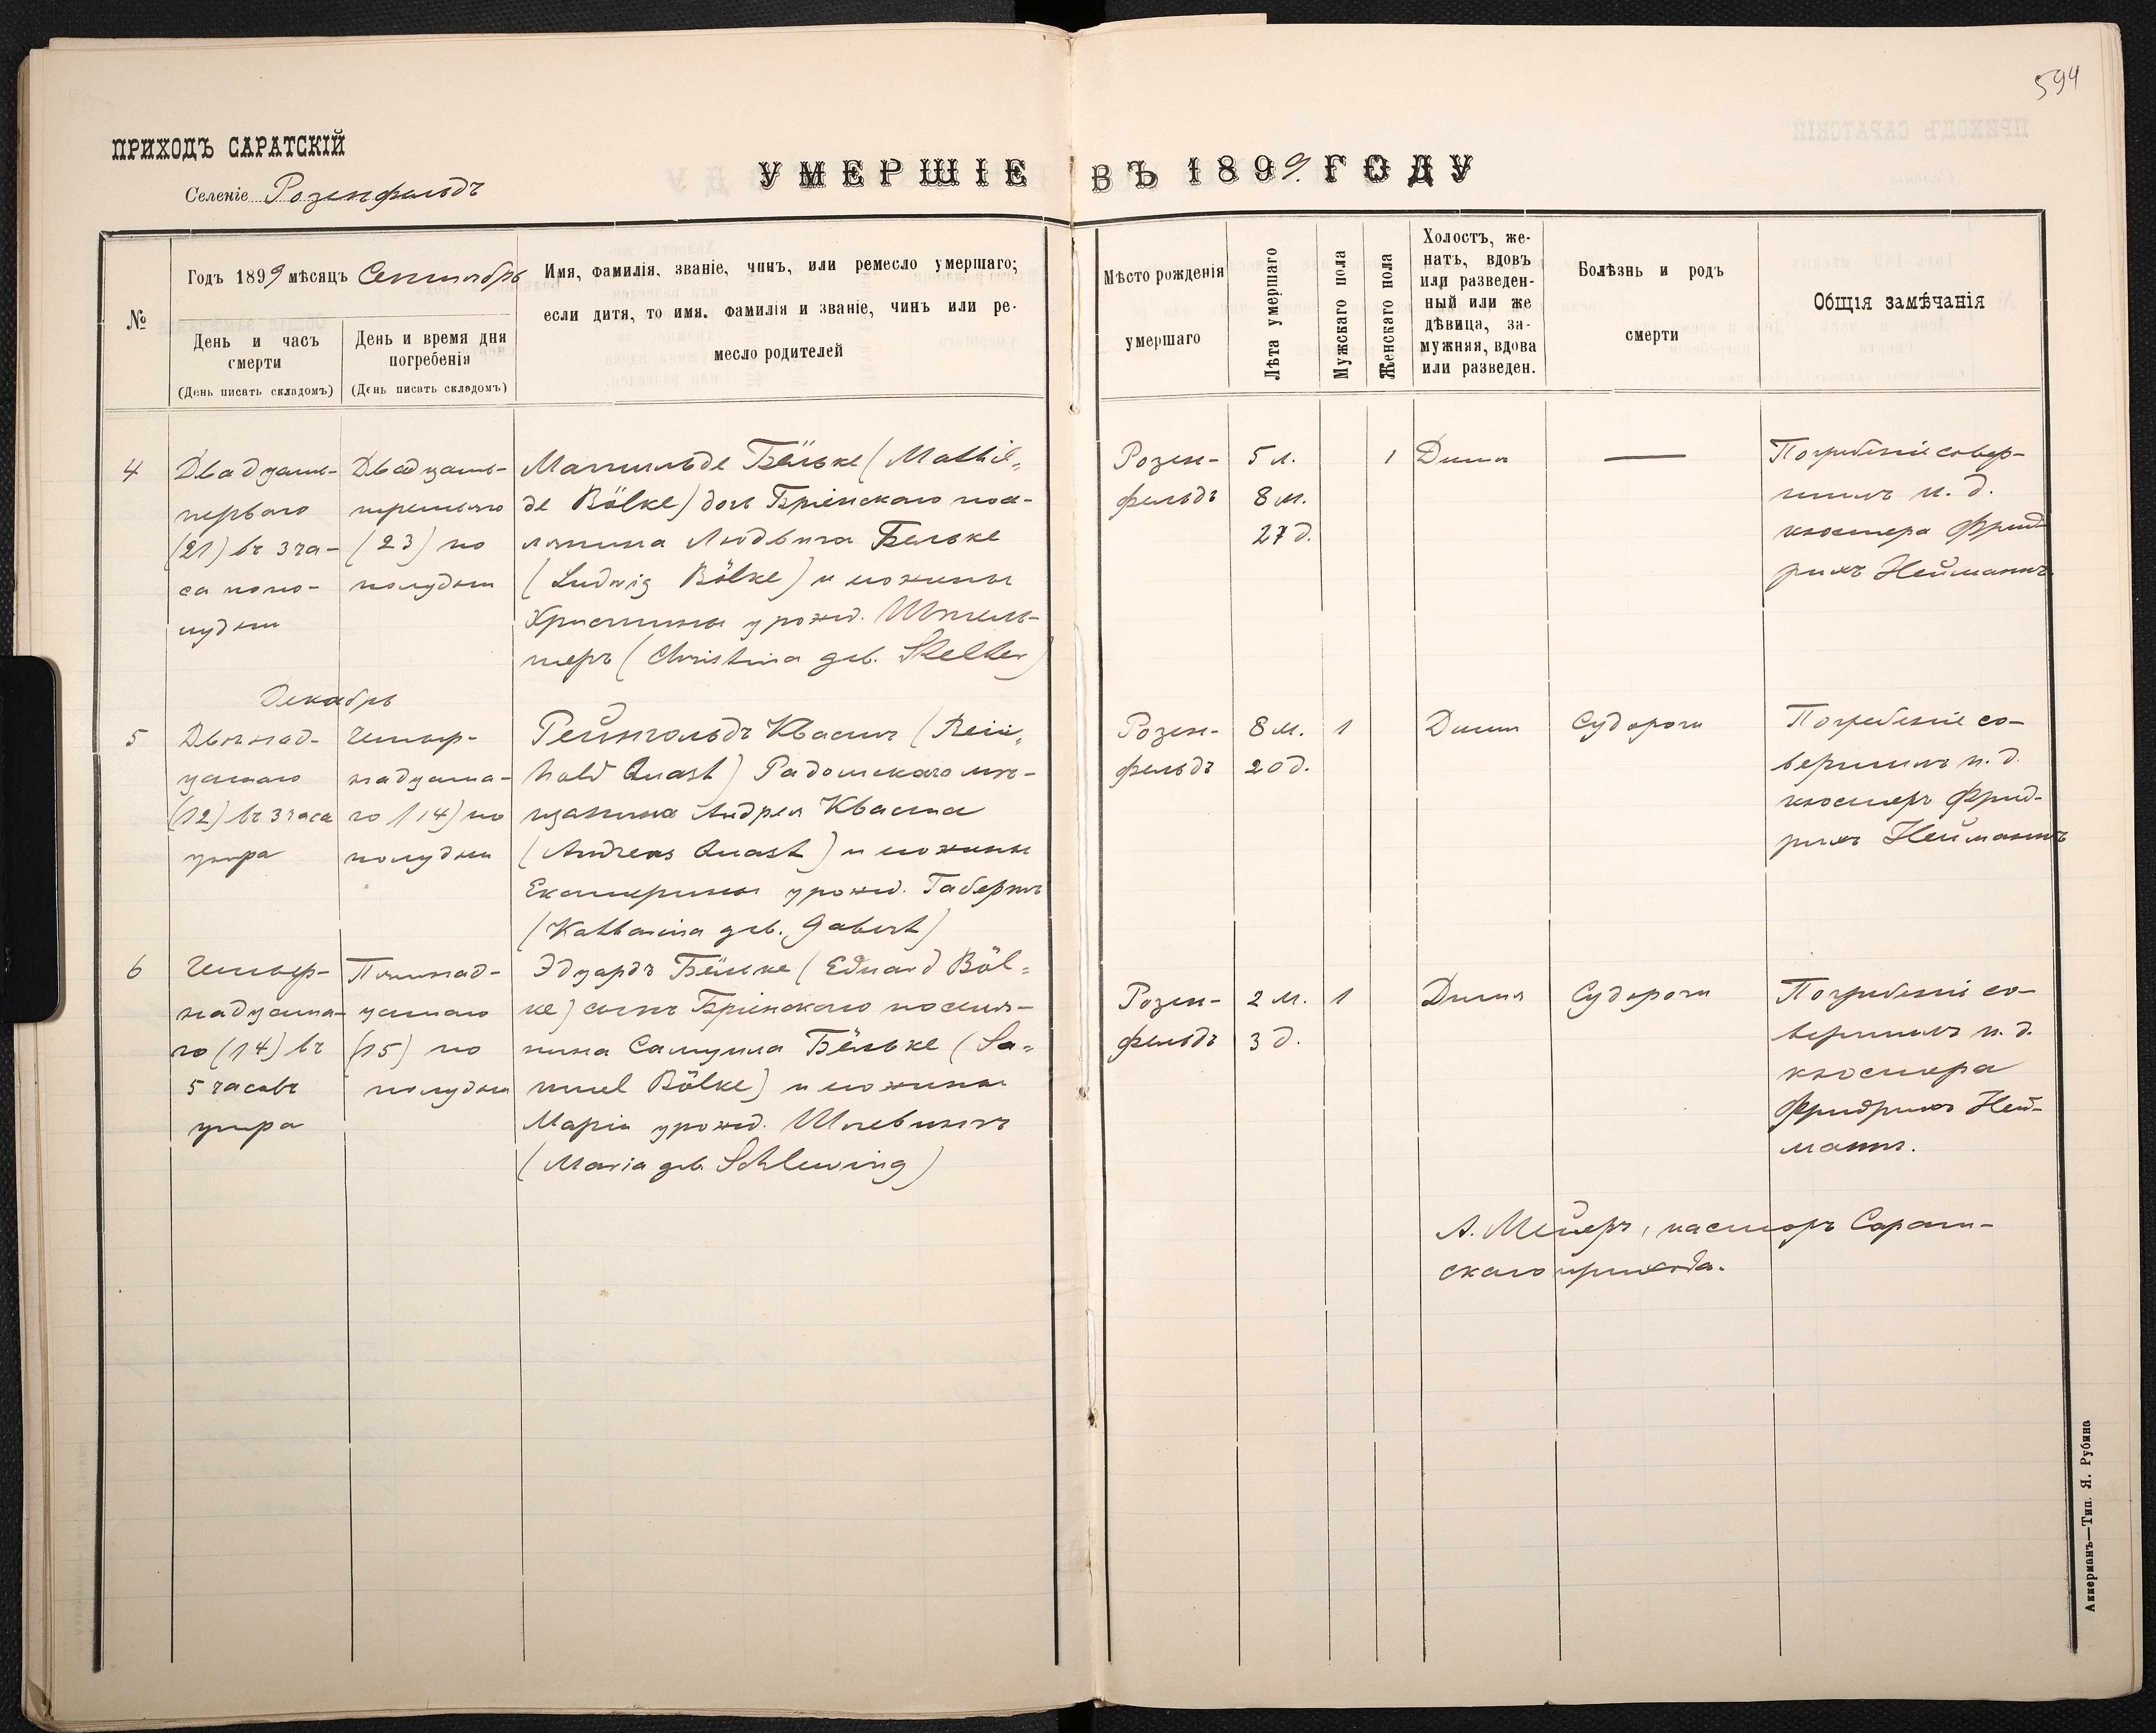 594
ПРИХОДЪ САРАТСКІЙ
Селеніе Розенфельдъ
УМЕРШІЕ ВЪ 1899 ГОДУ
№
Годъ 1899 мѣсяцъ Сентябрь
День и часъ смерти
(День писать складомъ)
День и время дня погребенія
(День писать складомъ)
Имя, фамилія, званіе, чинъ, или ремесло умершаго;
если дитя, то имя, фамилія и званіе, чинъ или ре-
месло родителей
Мѣсто рожденія
умершаго
Лѣта умершаго
Мужскаго пола
Женскаго пола
Холостъ, же-
натъ, вдовъ
или разведен-
ный или же
дѣвица, за-
мужняя, вдова
или разведен.
Болѣзнь и родъ
смерти
Общія замѣчанія
4
Двадцать-
перваго
(21) въ 3 ча-
са попо-
лудни
Двадцать-
третьяго
(23) по
полудни
Матильде Бёльке (Mathil-
de Bölke) дочь Бріенскаго посе-
лянина Людвига Бельке
(Ludwig Bölke) и его жены
Христины урожд. Штель-
теръ (Christina geb. Stelter)
Розен-
фельдъ
5 л.
8 м.
27 д.
1
Дитя
—
Погребеніе совер-
шилъ и. д.
кюстера Фрид-
рихъ Нейманнъ.
Декабрь
5
Двѣнад-
цатаго
(12) въ 3 часа
утра
Четыр-
надцата-
го (14) по
полудни
Рейнгольдъ Квастъ (Rein-
hold Quast) Радомскаго мѣ-
щанина Андрея Кваста
(Andreas Quast) и его жены
Екатерины урожд. Габертъ
(Katharina geb. Gabert)
Розен-
фельдъ
8 м.
20 д.
1
Дитя
Судороги
Погребеніе со-
вершилъ и. д.
кюстеръ Фрид-
рихъ Нейманнъ
6
Четыр-
надцата-
го (14) въ
5 часовъ
утра
Пятнад-
цатаго
(15) по
полудни
Эдуардъ Бёльке (Eduard Böl-
ke) сынъ Бріенскаго поселя-
нина Самуила Бёльке (Sa-
muel Bölke) и его жены
Маріи урожд. Шлевингъ
(Maria geb. Schlewing)
Розен-
фельдъ
2 м.
3 д.
1
Дитя
Судороги
Погребеніе со-
вершилъ и. д.
кюстера
Фридрихъ Ней-
маннъ.
А. Мейеръ, пасторъ Сарат-
скаго прихода.
Аккерманъ—Тип. Я. Рубина